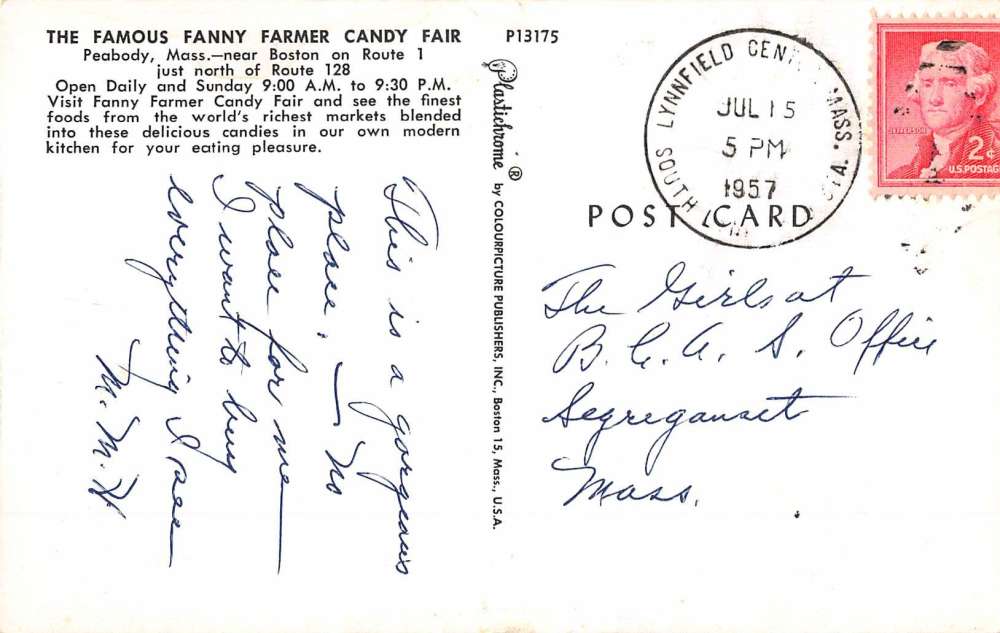 THE FAMOUS FANNY FARMER CANDY FAIR
Peabody, Mass.—near Boston on Route 1
just north of Route 128
Open Daily and Sunday 9:00 A.M. to 9:30 P.M.
Visit Fanny Farmer Candy Fair and see the finest
foods from the world's richest markets blended
into these delicious candies in our own modern
kitchen for your eating pleasure.
This is a gorgeous
place. — No
place for me —
I want to buy
everything I see —
M. M. H
P13175
Plastichrome ® by COLOURPICTURE PUBLISHERS, INC., Boston 15, Mass., U.S.A.
LYNNFIELD MASS.
SOUTH STA.
JUL 15
5 PM
1957
JEFFERSON
2¢
U.S. POSTAGE
POST CARD
The Girls at
B. C. A. S. Office
Segreganset
Mass.